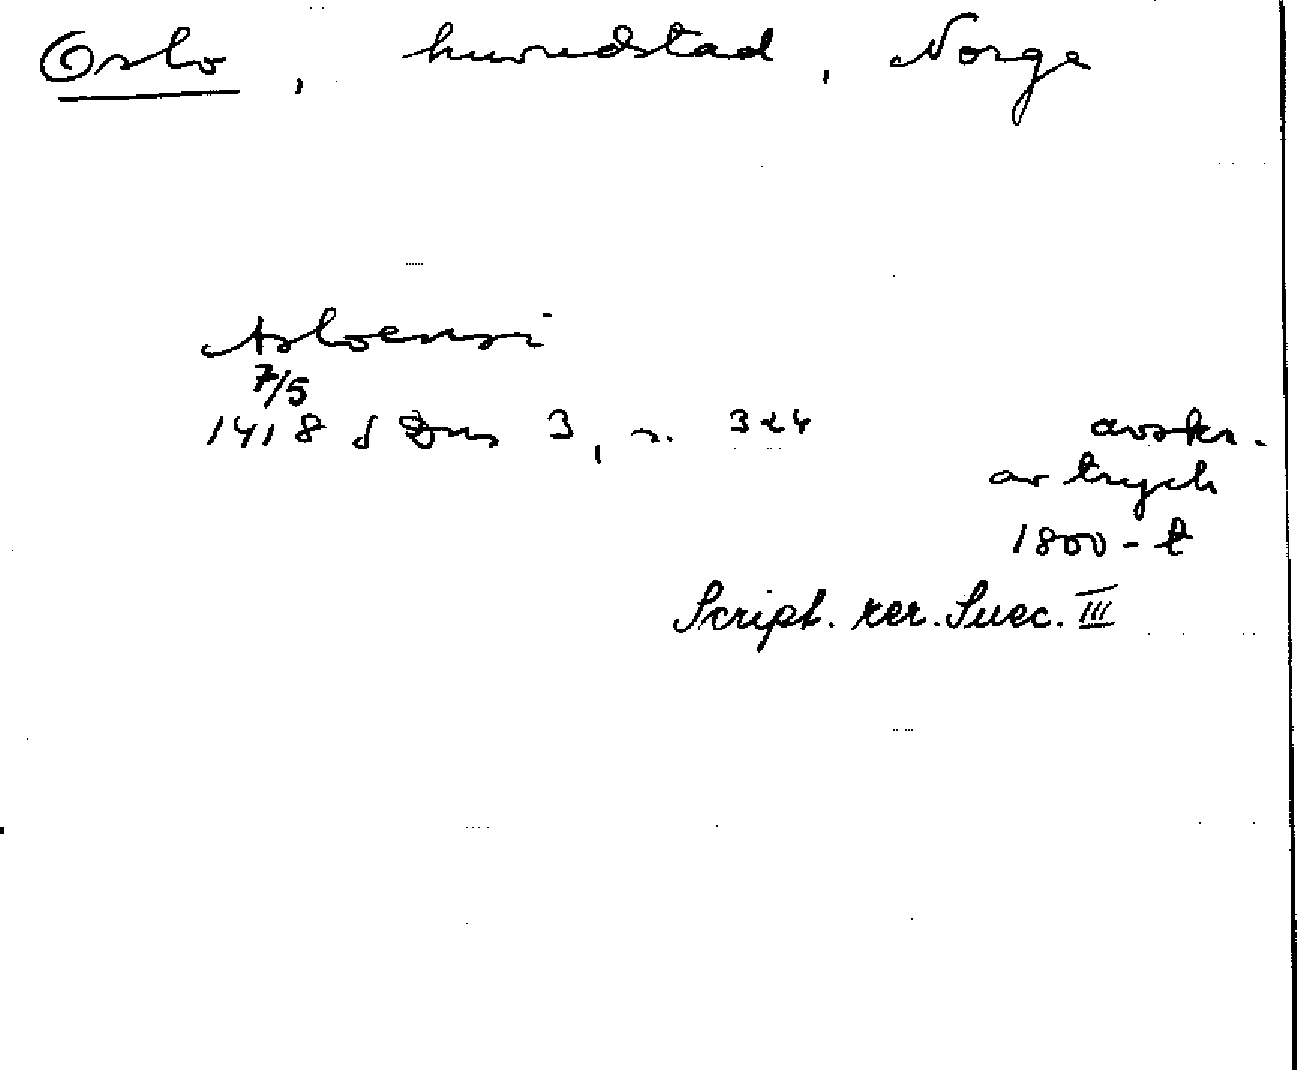 Oslo, huvudstad, Norge
Asloensi
7/5
1418 f Dns 3, s. 324
avskr.
av tryck
1800-t
Script. rer. Suec. III